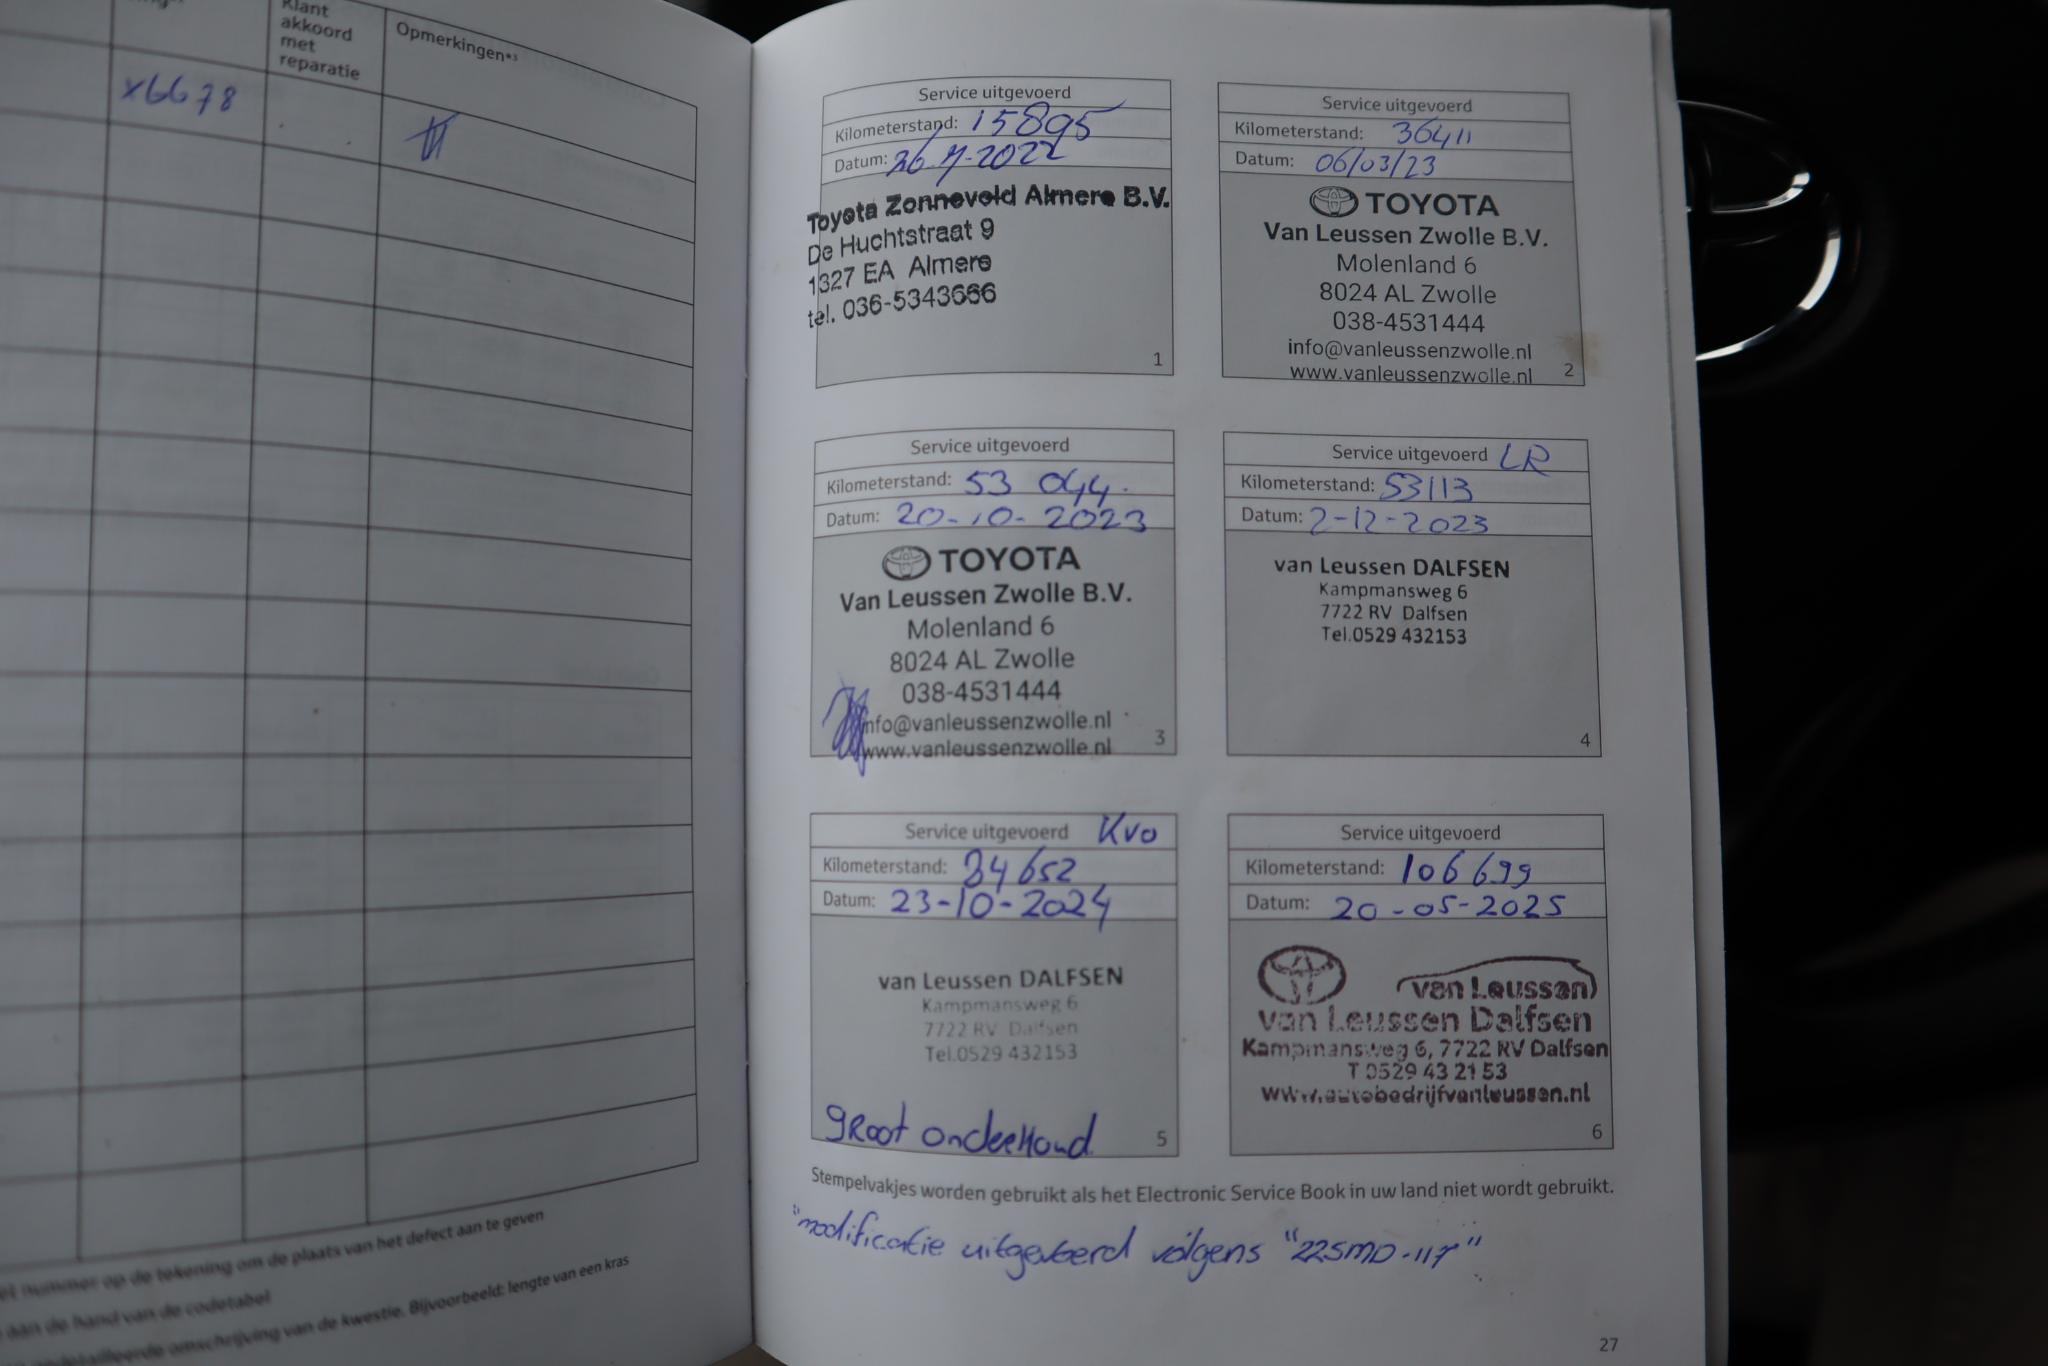 Klant
akkoord
met
reparatie
Opmerkingen*³
x6678
et nummer op de tekening om de plaats van het defect aan te geven
aan de hand van de codetabel
omschrijving van de kwestie. Bijvoorbeeld: lengte van een kras
Service uitgevoerd
Kilometerstand: 15895
Datum: 2022
Toyota Zonneveld Almere B.V.
De Huchtstraat 9
1327 EA Almere
tel. 036-5343666
1
Service uitgevoerd
Kilometerstand: 36411
Datum: 06/03/23
TOYOTA
Van Leussen Zwolle B.V.
Molenland 6
8024 AL Zwolle
038-4531444
info@vanleussenzwolle.nl
www.vanleussenzwolle.nl
2
Service uitgevoerd
Kilometerstand: 53 044.
Datum: 20-10-2023
TOYOTA
Van Leussen Zwolle B.V.
Molenland 6
8024 AL Zwolle
038-4531444
info@vanleussenzwolle.nl
www.vanleussenzwolle.nl
3
Service uitgevoerd LR
Kilometerstand: 53113
Datum: 2-12-2023
van Leussen DALFSEN
Kampmansweg 6
7722 RV Dalfsen
Tel.0529 432153
4
Service uitgevoerd KVO
Kilometerstand: 84652
Datum: 23-10-2024
van Leussen DALFSEN
Kampmansweg 6
7722 RV Dalfsen
Tel.0529 432153
groot onderhoud
5
Service uitgevoerd
Kilometerstand: 106699
Datum: 20-05-2025
van Leussen
van Leussen Dalfsen
Kampmansweg 6, 7722 RV Dalfsen
T 0529 43 21 53
www.autobedrijfvanleussen.nl
6
Stempelvakjes worden gebruikt als het Electronic Service Book in uw land niet wordt gebruikt.
"modificatie uitgevoerd volgens "22SMD-117"
27